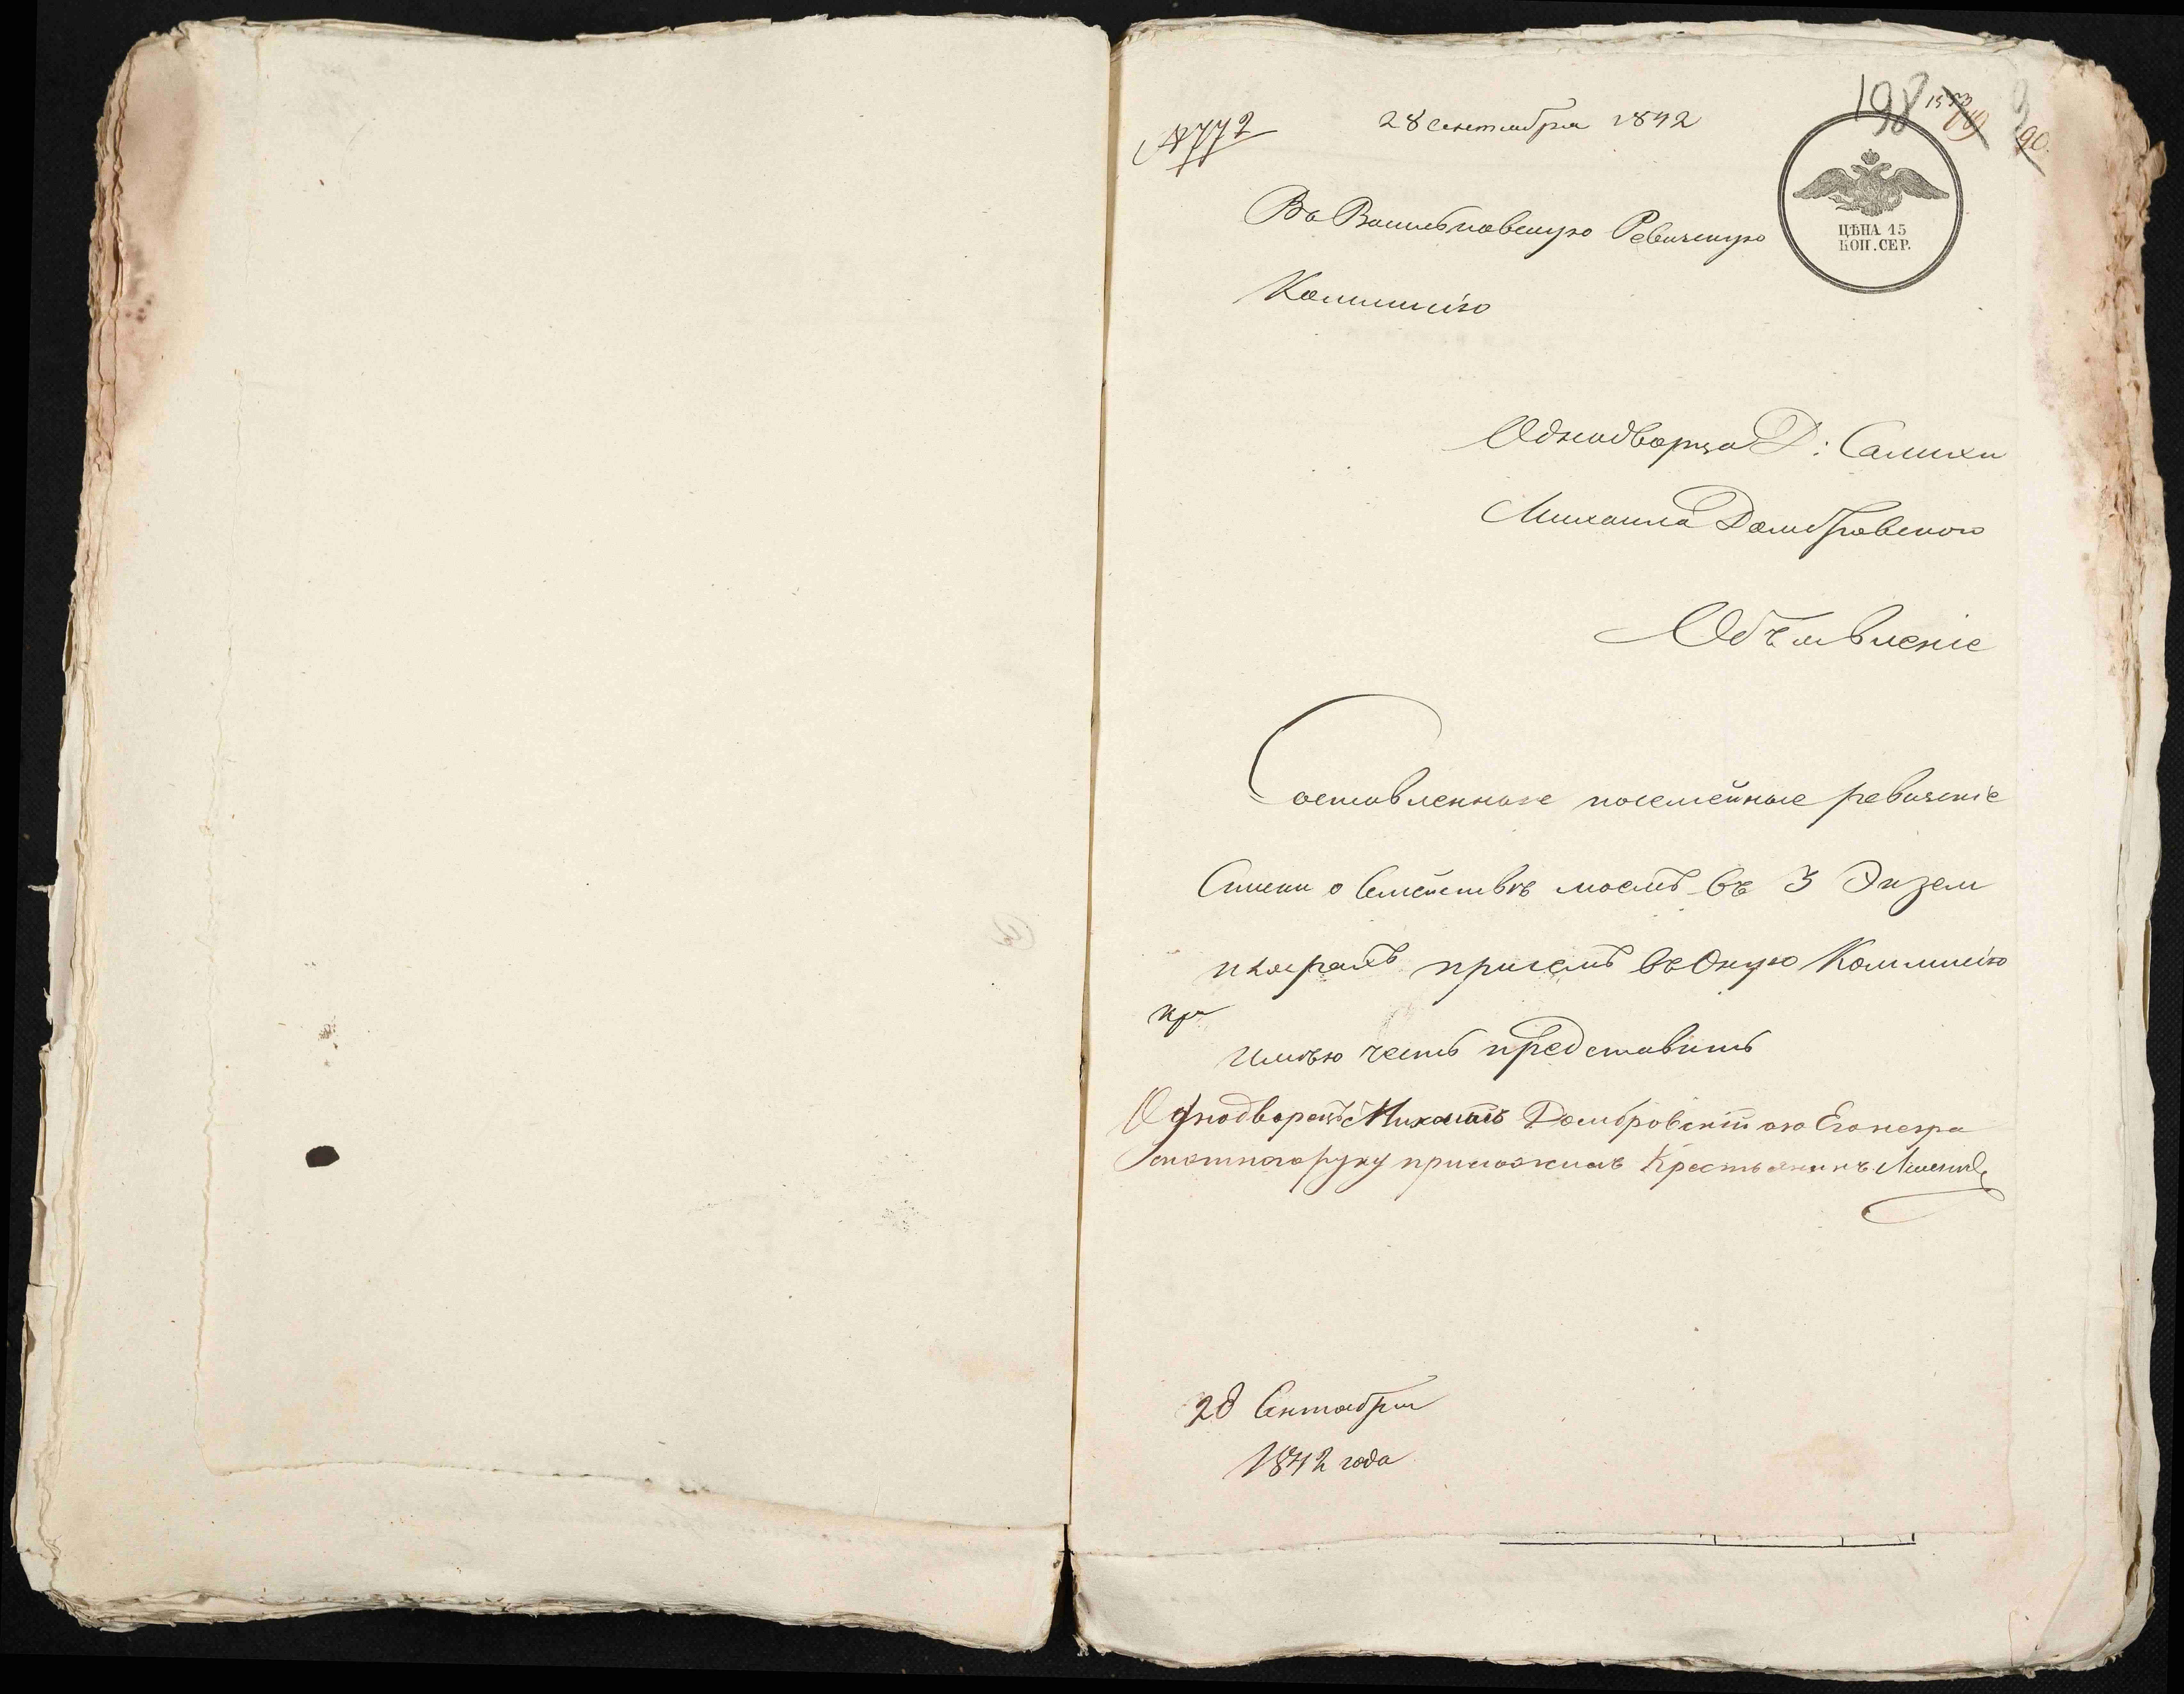 № 772
28 Сентября 1842
198
90.
ЦѢНА 15
КОП. СЕР.
Въ Васильковскую Ревизскую
Коммисію
Однодворца Д: Салихи
Михаила Домбровского
Объявленіе
Составленные посемейные ревизскіе
Списки о Семействѣ моемъ въ 3 Экзем
плярахъ присемъ въ Оную Коммисію
имѣю честь представить
Однодворецъ Михаилъ Домбровскій аза Его негра
мотнаго руку приложилъ Крестьянинъ
28 Сентября
1842 года